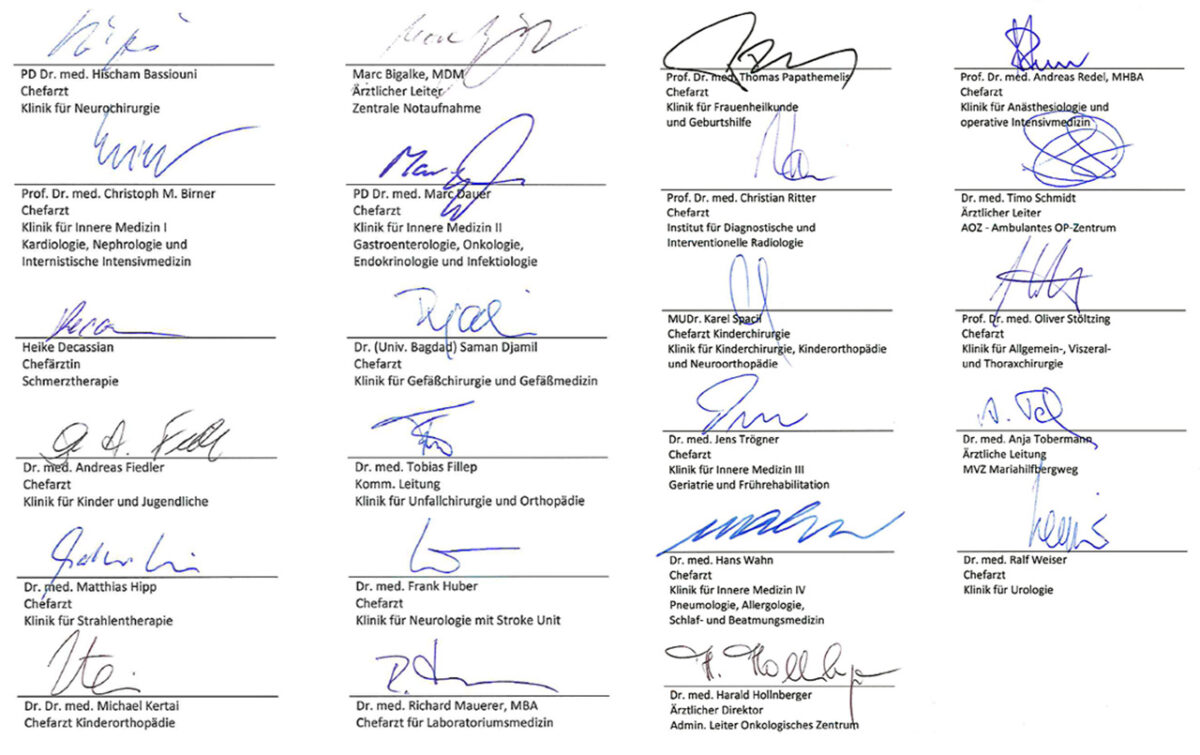 PD Dr. med. Hischam Bassiouni
Chefarzt
Klinik für Neurochirurgie
Prof. Dr. med. Christoph M. Birner
Chefarzt
Klinik für Innere Medizin I
Kardiologie, Nephrologie und
Internistische Intensivmedizin
Heike Decassian
Chefärztin
Schmerztherapie
Dr. med. Andreas Fiedler
Chefarzt
Klinik für Kinder und Jugendliche
Dr. med. Matthias Hipp
Chefarzt
Klinik für Strahlentherapie
Dr. Dr. med. Michael Kertai
Chefarzt Kinderorthopädie
Marc Bigalke, MDM
Ärztlicher Leiter
Zentrale Notaufnahme
PD Dr. med. Marc Dauer
Chefarzt
Klinik für Innere Medizin II
Gastroenterologie, Onkologie,
Endokrinologie und Infektiologie
Dr. (Univ. Bagdad) Saman Djamil
Chefarzt
Klinik für Gefäßchirurgie und Gefäßmedizin
Dr. med. Tobias Fillep
Komm. Leitung
Klinik für Unfallchirurgie und Orthopädie
Dr. med. Frank Huber
Chefarzt
Klinik für Neurologie mit Stroke Unit
Dr. med. Richard Mauerer, MBA
Chefarzt für Laboratoriumsmedizin
Prof. Dr. med. Thomas Papathemelis
Chefarzt
Klinik für Frauenheilkunde
und Geburtshilfe
Prof. Dr. med. Christian Ritter
Chefarzt
Institut für Diagnostische und
Interventionelle Radiologie
MUDr. Karel Spacil
Chefarzt Kinderchirurgie
Klinik für Kinderchirurgie, Kinderorthopädie
und Neuroorthopädie
Dr. med. Jens Trögner
Chefarzt
Klinik für Innere Medizin III
Geriatrie und Frührehabilitation
Dr. med. Hans Wahn
Chefarzt
Klinik für Innere Medizin IV
Pneumologie, Allergologie,
Schlaf- und Beatmungsmedizin
H. Hollnberger
Dr. med. Harald Hollnberger
Ärztlicher Direktor
Admin. Leiter Onkologisches Zentrum
Prof. Dr. med. Andreas Redel, MHBA
Chefarzt
Klinik für Anästhesiologie und
operative Intensivmedizin
Dr. med. Timo Schmidt
Ärztlicher Leiter
AOZ - Ambulantes OP-Zentrum
Prof. Dr. med. Oliver Stöltzing
Chefarzt
Klinik für Allgemein-, Viszeral-
und Thoraxchirurgie
Dr. med. Anja Tobermann
Ärztliche Leitung
MVZ Mariahilfbergweg
Dr. med. Ralf Weiser
Chefarzt
Klinik für Urologie